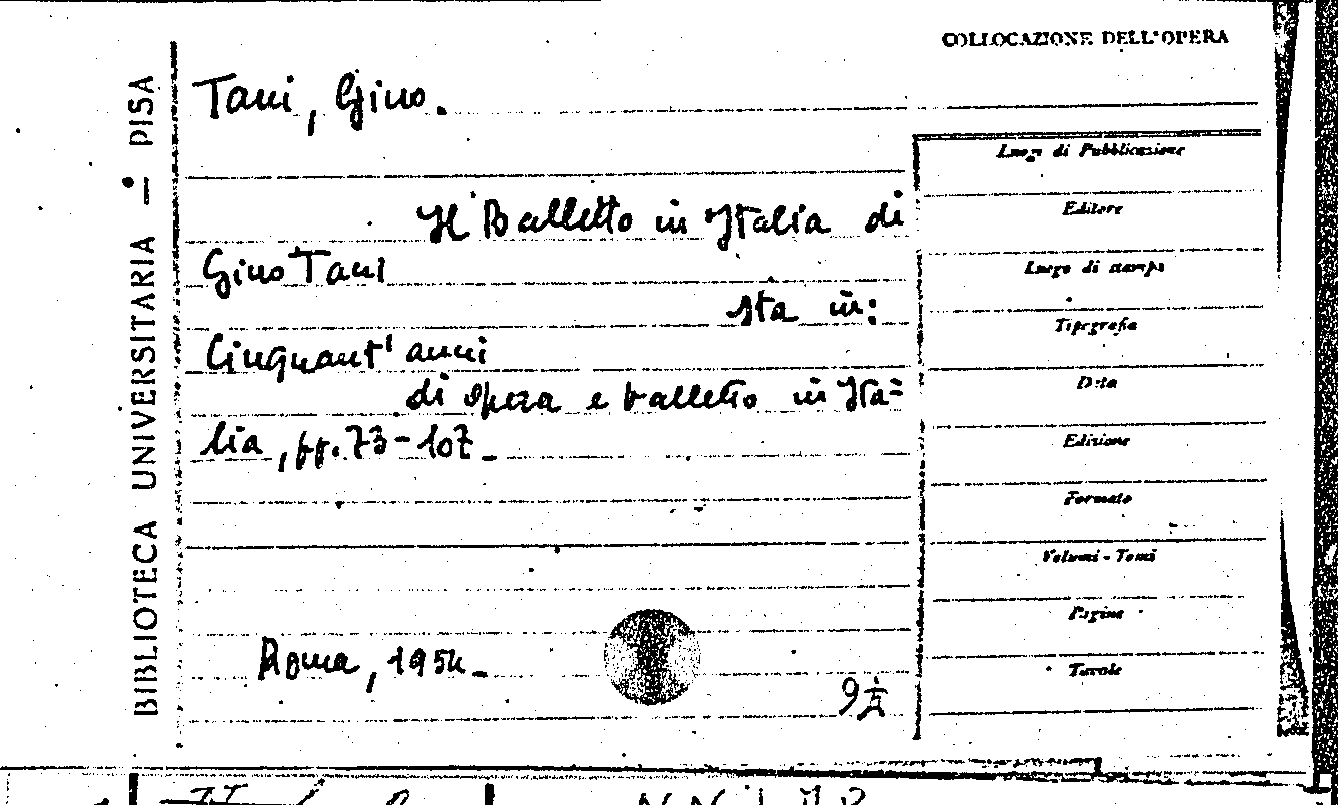 COLLOCAZIONE DELL'OPERA
BIBLIOTECA UNIVERSITARIA — PISA
Tani, Gino.
Il Balletto in Italia di
Gino Tani
sta in:
Cinquant'anni
di opera e balletto in Ita=
lia, pp. 73-107_
Roma, 1954_
Luogo di Pubblicazione
Editore
Luogo di stampa
Tipografia
Data
Edizione
Formato
Volumi - Tomi
Pagine
Tavole